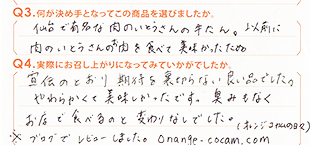 Q3.何が決め手となってこの商品を選びましたか。
仙台で有名な肉のいとうさんの牛たん。以前に
肉のいとうさんのお肉を食べて美味かったため
Q4.実際にお召し上がりになってみていかがでしたか。
宣伝のとおり期待を裏切らない良い品でした。
やわらかくて美味しかったです。臭みもなく
お店で食べるのと変わりなしでした。
(オレンジコカムの日々)
※ブログでレビューしました。orange-cocam.com